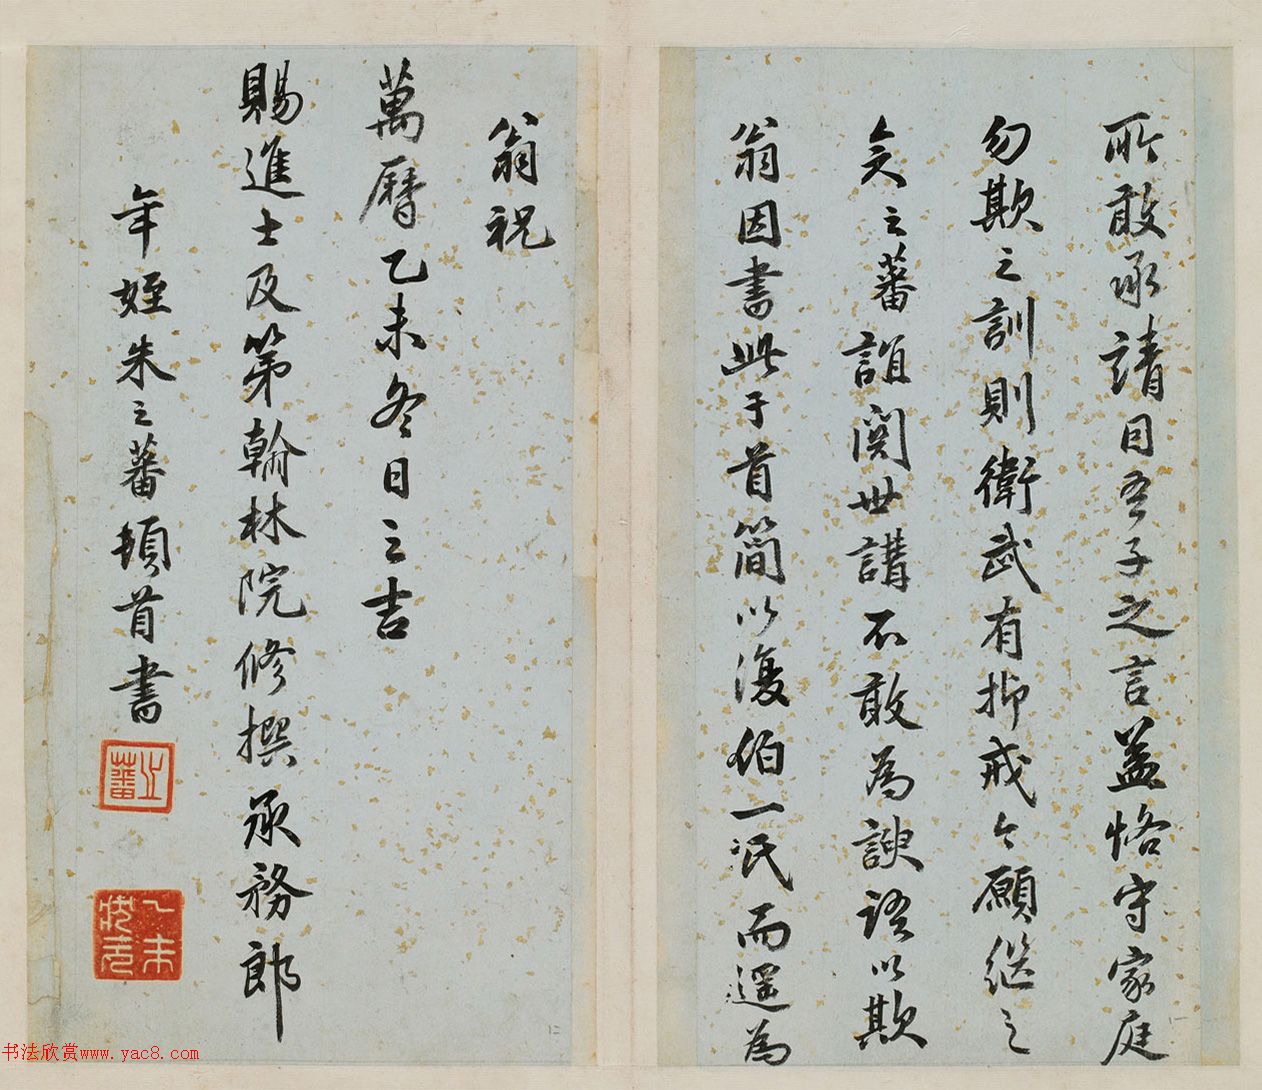 所敢承請目吾子之言益恪守家庭
勿欺之訓則衛武有抑戒今願繼之
矣之蕃誼関世講不敢為諛語以欺
翁因書此于首簡以復伯一氏而遥為
翁祝
萬曆乙未冬日之吉
賜進士及第翰林院修撰承務郎
年姪朱之蕃頓首書
之蕃
乙未
书法欣赏www.yac8.com